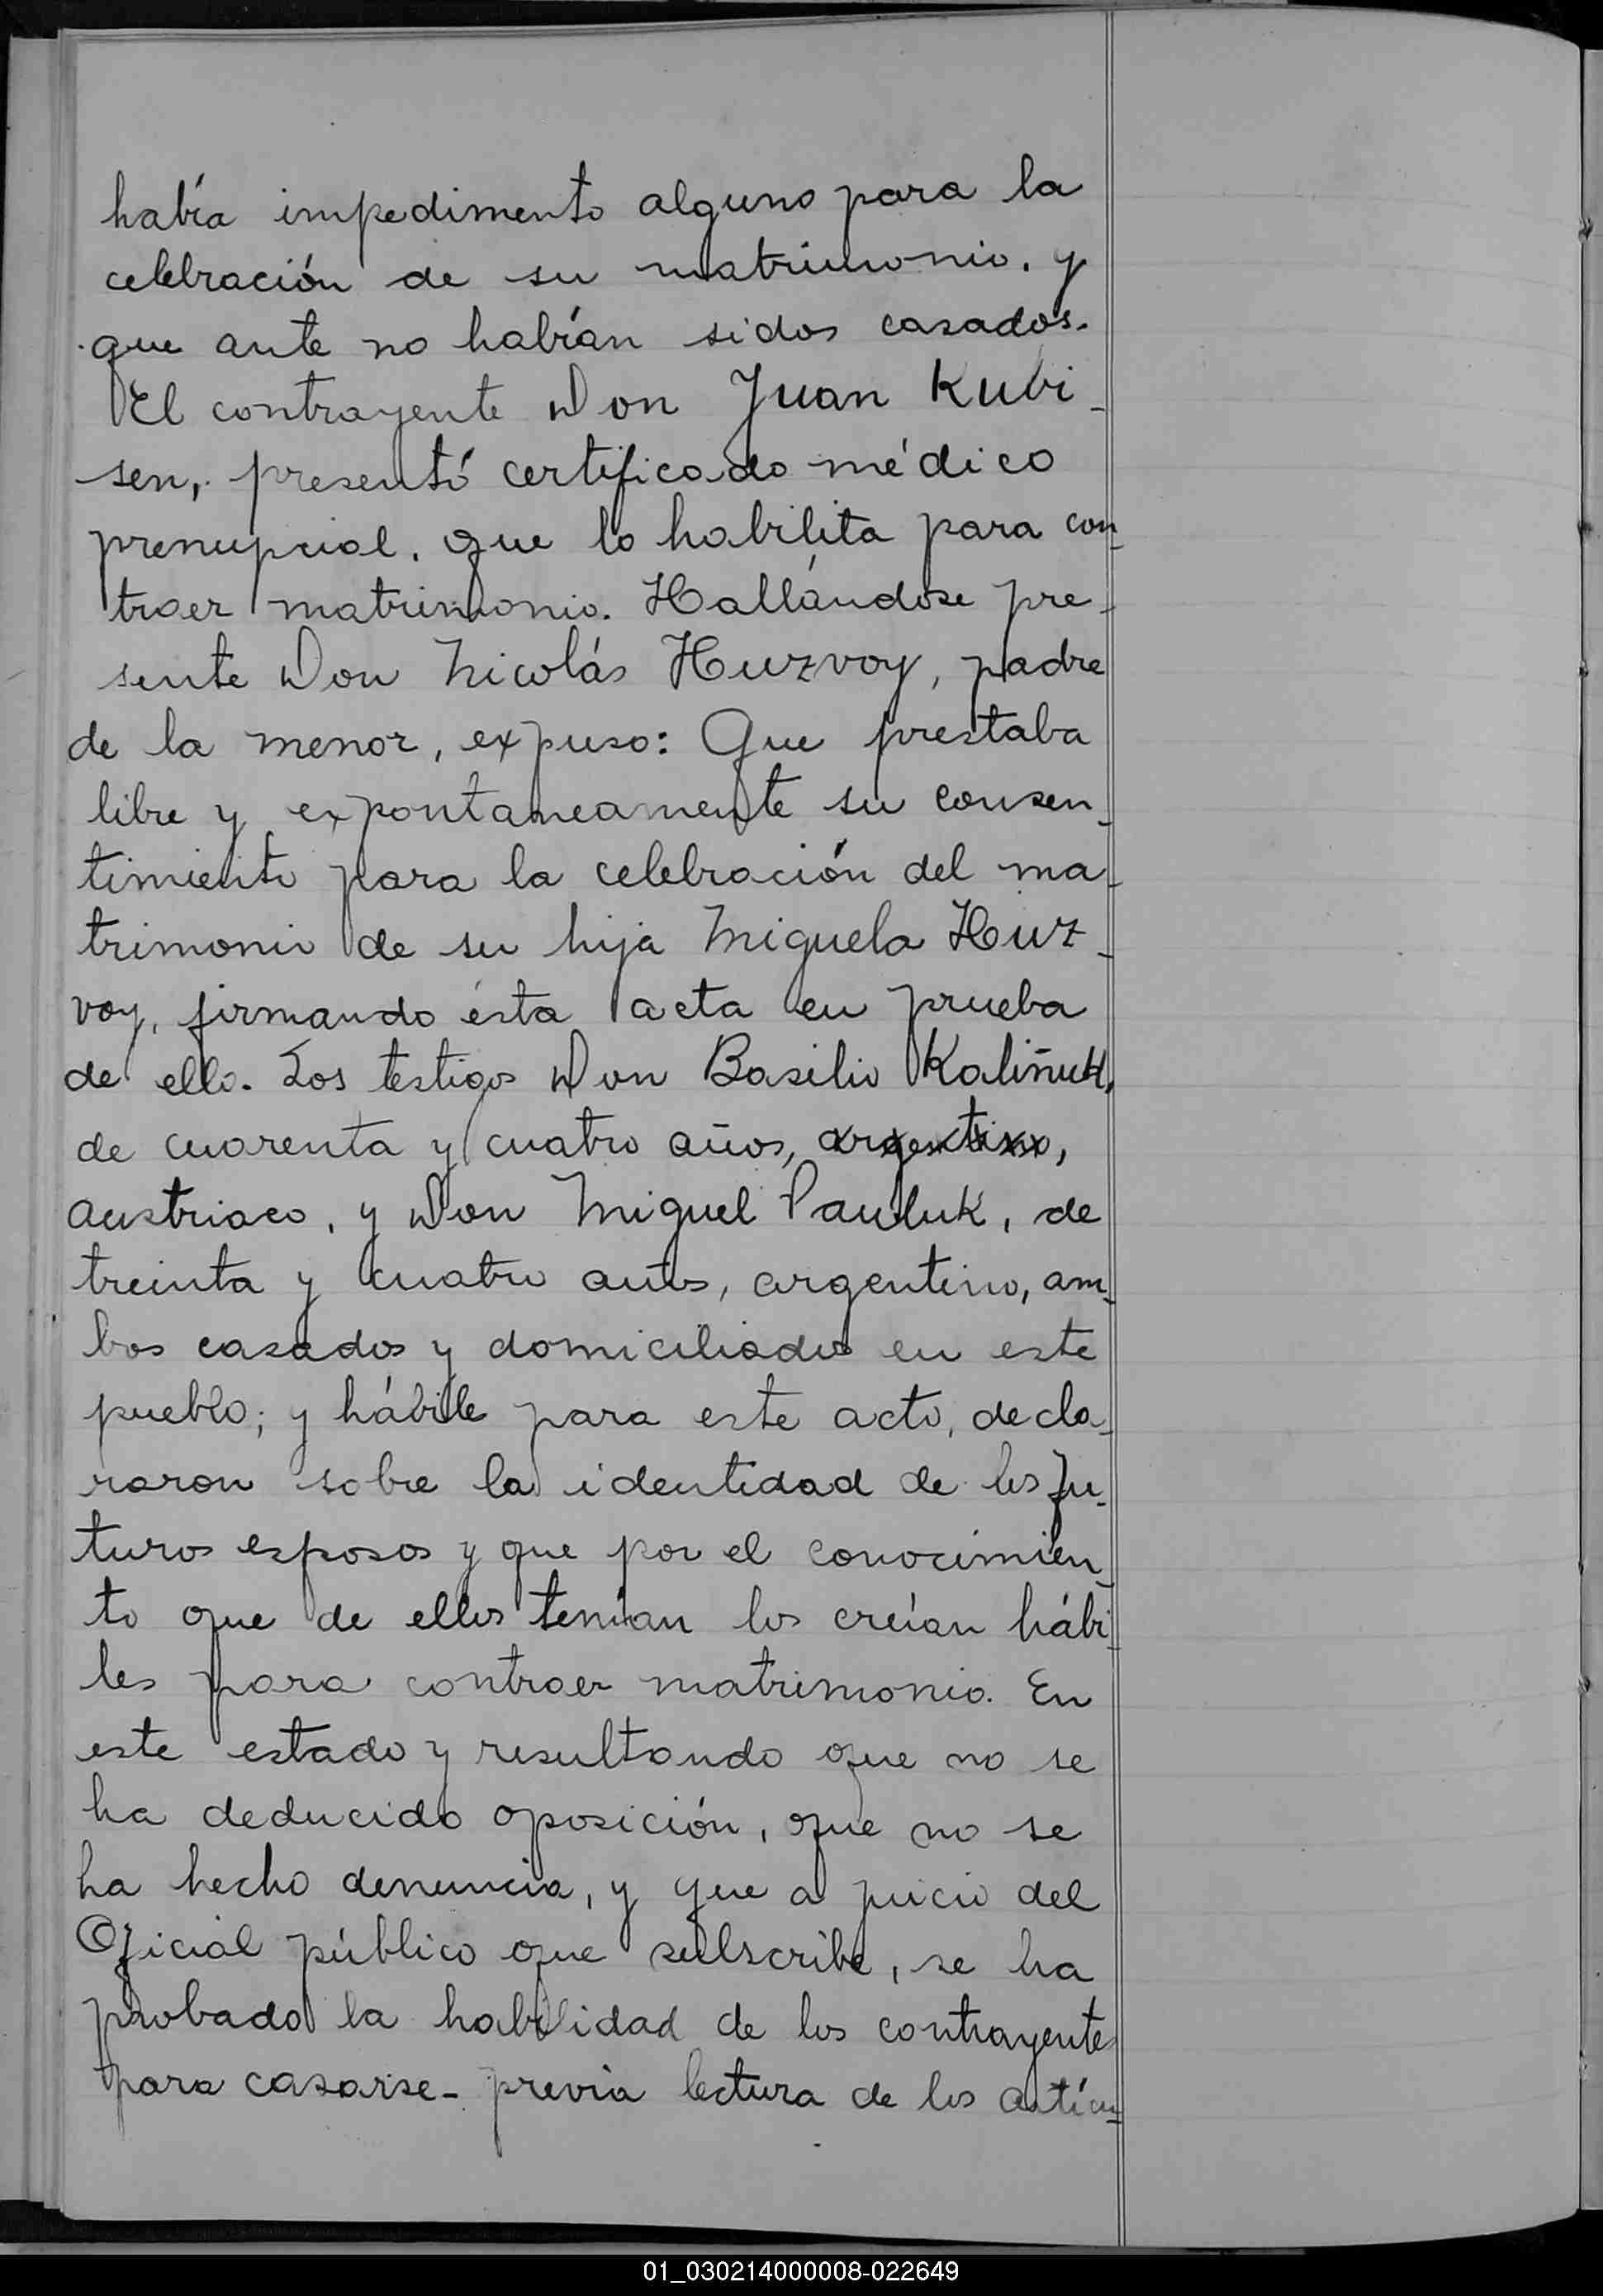 había impedimento alguno para la
celebración de su matrimonio. y
que ante no habían sidos casados.
El contrayente Don Juan Kubi-
sen, presentó certificado médico
prenupcial, que lo habilita para con-
traer matrimonio. Hallándose pre-
sente Don Nicolás Huzvoy, padre
de la menor, expuso: Que prestaba
libre y expontaneamente su consen-
timiento para la celebración del ma-
trimonio de su hija Miguela Huz-
voy, firmando ésta acta en prueba
de ello. Los testigos Don Basilio Kaliñuk,
de cuarenta y cuatro años, argentino,
austriaco, y Don Miguel Pauluk, de
treinta y cuatro años, argentino, am-
bos casados y domiciliados en este
pueblo; y hábile para este acto, decla-
raron sobre la identidad de los fu-
turos esposos y que por el conocimien-
to que de ellos tenían los creían hábi-
les para contraer matrimonio. En
este estado y resultando que no se
ha deducido oposición, que no se
ha hecho denuncia, y que a juicio del
Oficial público que subscribe, se ha
probado la habilidad de los contrayentes
para casarse- previa lectura de los artícu-
01_030214000008-022649